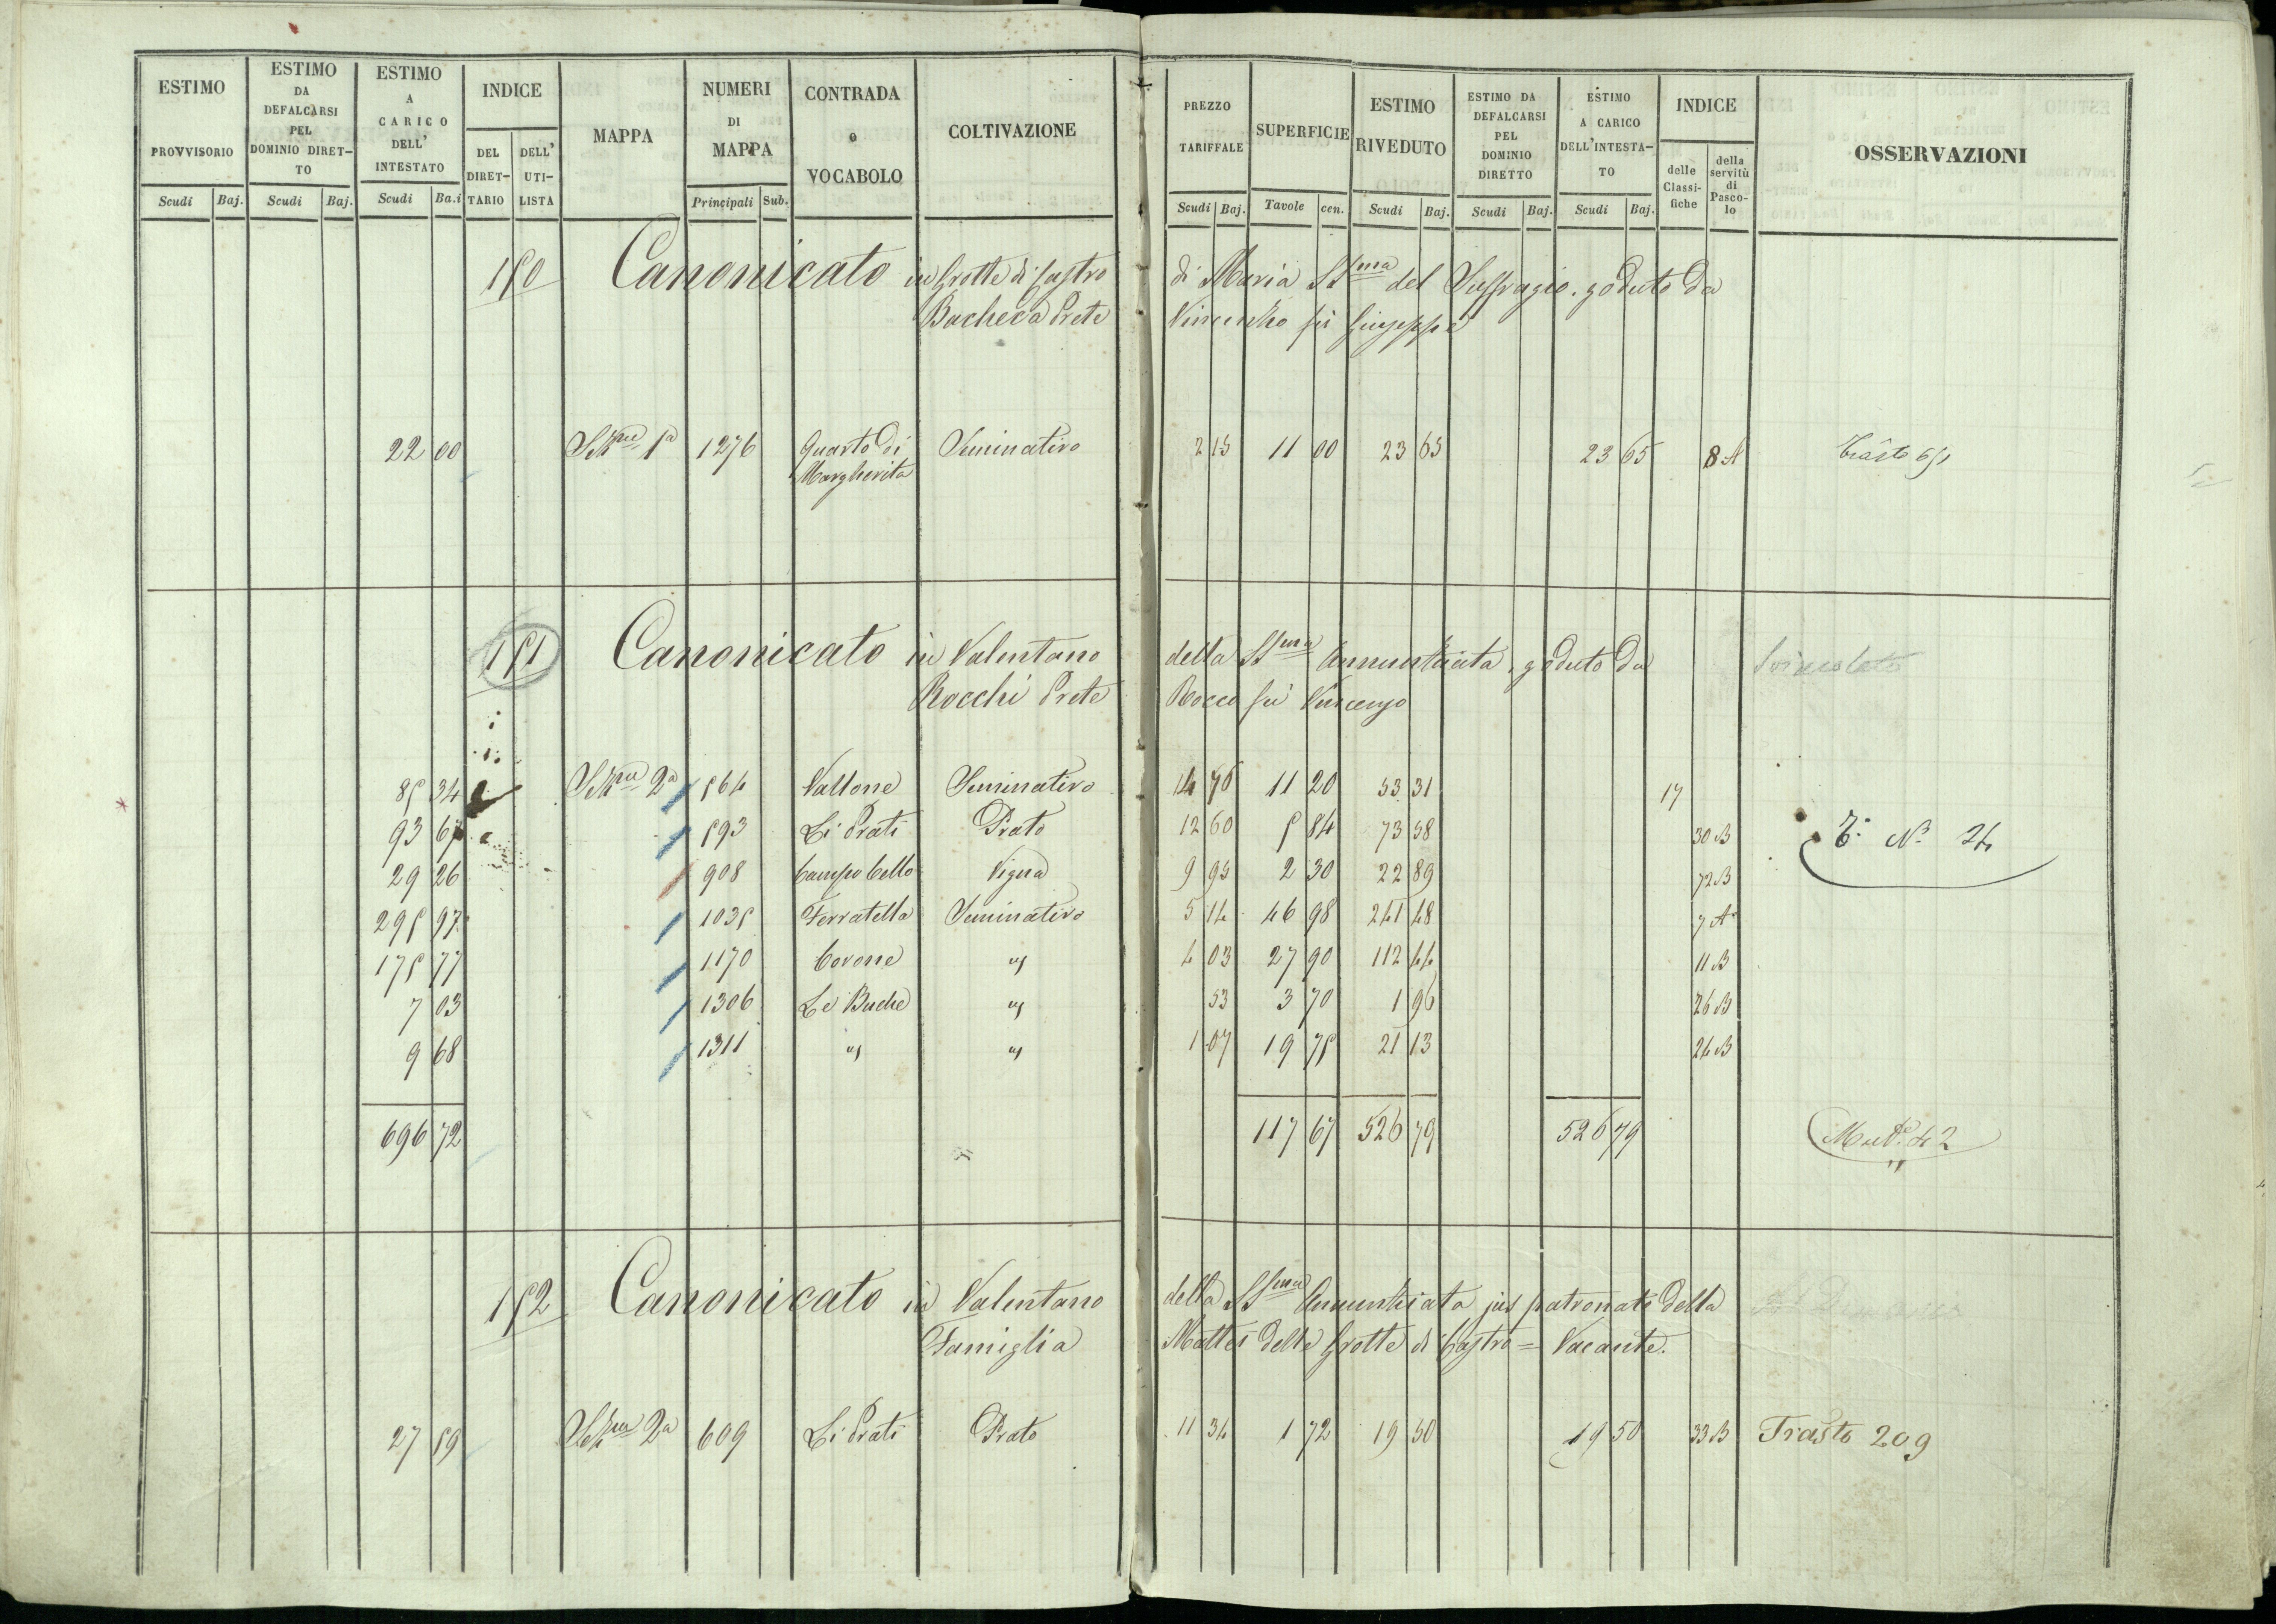 ESTIMO PROVVISORIO Scudi Baj.
ESTIMO DA DEFALCARSI PEL DOMINIO DIRETTO Scudi Baj.
ESTIMO A CARICO DELL' INTESTATO Scudi Ba.i
INDICE DEL DIRETTARIO DELL' UTILISTA
MAPPA
NUMERI DI MAPPA Principali Sub.
CONTRADA o VOCABOLO
COLTIVAZIONE
PREZZO TARIFFALE Scudi Baj.
SUPERFICIE Tavole cen.
ESTIMO RIVEDUTO Scudi Baj.
ESTIMO DA DEFALCARSI PEL DOMINIO DIRETTO Scudi Baj.
ESTIMO A CARICO DELL'INTESTATO Scudi Baj.
INDICE delle Classifiche della servitù di Pascolo
OSSERVAZIONI
150 Canonicato in Grotte di Castro di Maria SSma del Suffragio. goduto da
Bacheca Prete Vincenzo fù Giuseppe
22 00 1a 1276 Quarto di Margherita Seminativo 2 15 11 00 23 65 23 65 8 A
151 Canonicato in Valentano della SSma Annunziata, goduto da Svincolato
Rocchi Prete Rocco fù Vincenzo
85 34 2a 564 Vallone Seminativo 4 76 11 20 53 31 17
93 67 593 Li Prati Prato 12 60 5 84 73 58 30 B T. N. 24
29 26 908 Campo bello Vigna 9 95 2 30 22 89 72 B
295 97 1035 Ferratella Seminativo 5 14 46 98 241 48 7 A
175 77 1170 Corone " 4 03 27 90 112 44 11 B
7 03 1306 Le Buche " 53 3 70 1 96 26 B
9 68 1311 " " 1 07 19 75 21 13 24 B
696 72 117 67 526 79 526 79
152 Canonicato in Valentano della SSma Annunziata jus patronato della
Famiglia Mattei delle Grotte di Castro = Vacante.
27 59 2a 609 Li Prati Prato 11 34 1 72 19 50 19 50 33 B Trasto 209